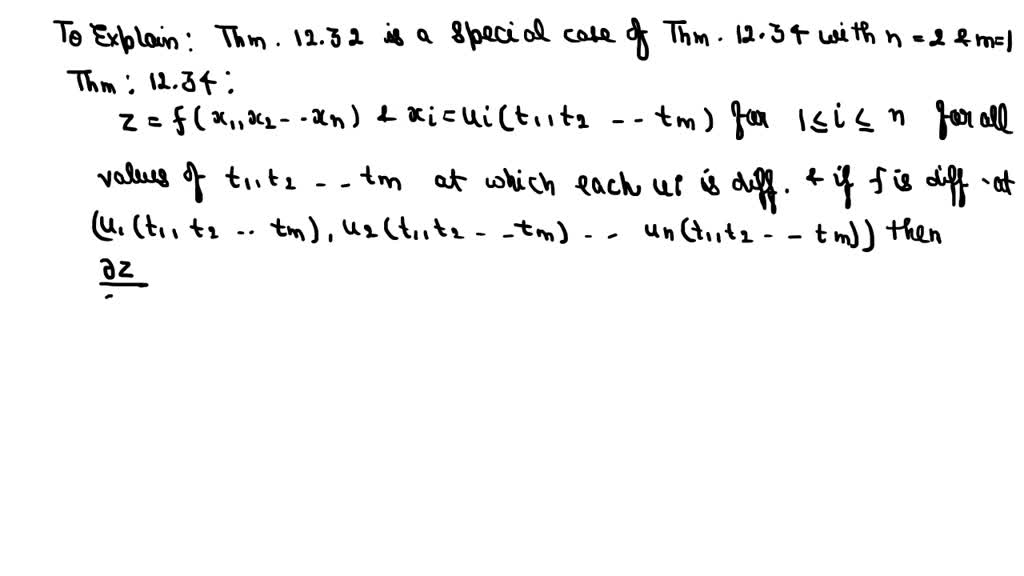 To Explain: Thm. 12.32 is a special case of Thm. 12.34 with n = 2 & m=1
Thm: 12.34:
z = f(x1,x2 -- xn) & xi = ui(t1,t2 -- tm) for 1 ≤ i ≤ n for all
values of t1,t2 -- tm at which each ui is diff. & if f is diff. at
(u1(t1, t2 -- tm), u2(t1,t2 -- tm) -- un(t1,t2 -- tm)) then
∂z